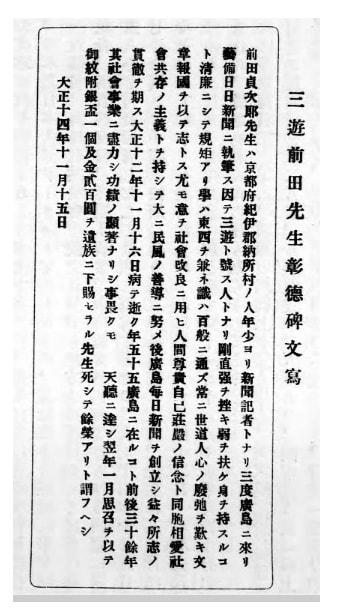 三遊前田先生彰德碑文寫
前田貞次郎先生ハ京都府紀伊郡納所村ノ人年少ヨリ新聞記者トナリ三度廣島ニ來リ
藝備日日新聞ニ執筆ス因テ三遊ト號ス人トナリ剛直强ヲ挫キ弱ヲ扶ケ身ヲ持スルコ
ト淸廉ニシテ規矩アリ學ハ東西ヲ兼ネ識ハ百般ニ通ズ常ニ世道人心ノ廢弛ヲ歎キ文
章報國ヲ以テ志トス尤モ意ヲ社會改良ニ用ヒ人間尊貴自己莊嚴ノ信念ト同胞相愛社
會共存ノ主義トヲ持シテ大ニ民風ノ善導ニ努メ後廣島每日新聞ヲ創立シ益々所志ノ
貫徹ヲ期ス大正十二年十一月十六日病テ逝ク年五十五廣島ニ在ルコト前後三十餘年
其社會事業ニ盡力シ功績ノ顯著ナリシ事畏クモ 天聽ニ達シ翌年一月思召ヲ以テ
御紋附銀盃一個及金貳百圓ヲ遺族ニ下賜セラル先生死シテ餘榮アリト謂フヘシ
大正十四年十一月十五日